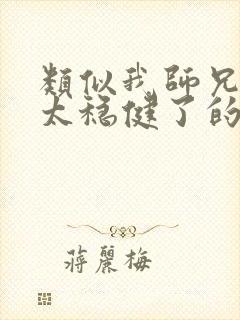 類似我師兄
太穩健了的
蔣麗梅